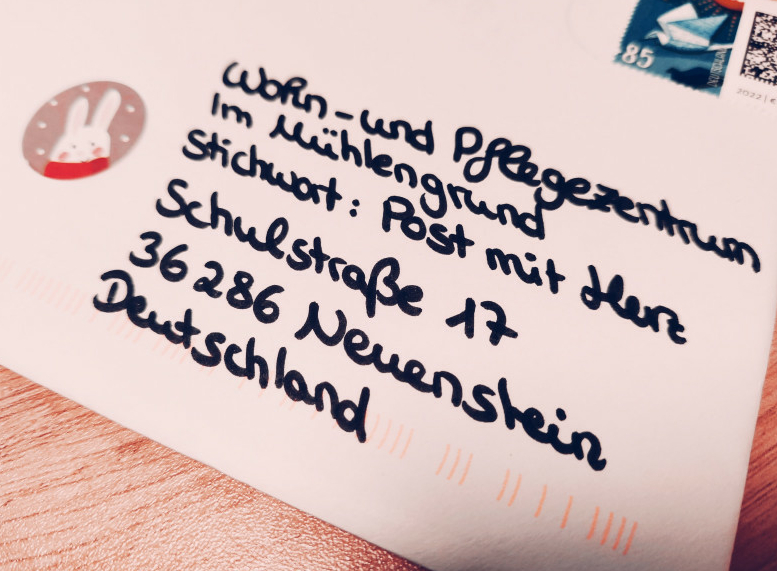 85
2022 | €
Wohn- und Pflegezentrum
Im Mühlengrund
Stichwort: Post mit Herz
Schulstraße 17
36286 Neuenstein
Deutschland